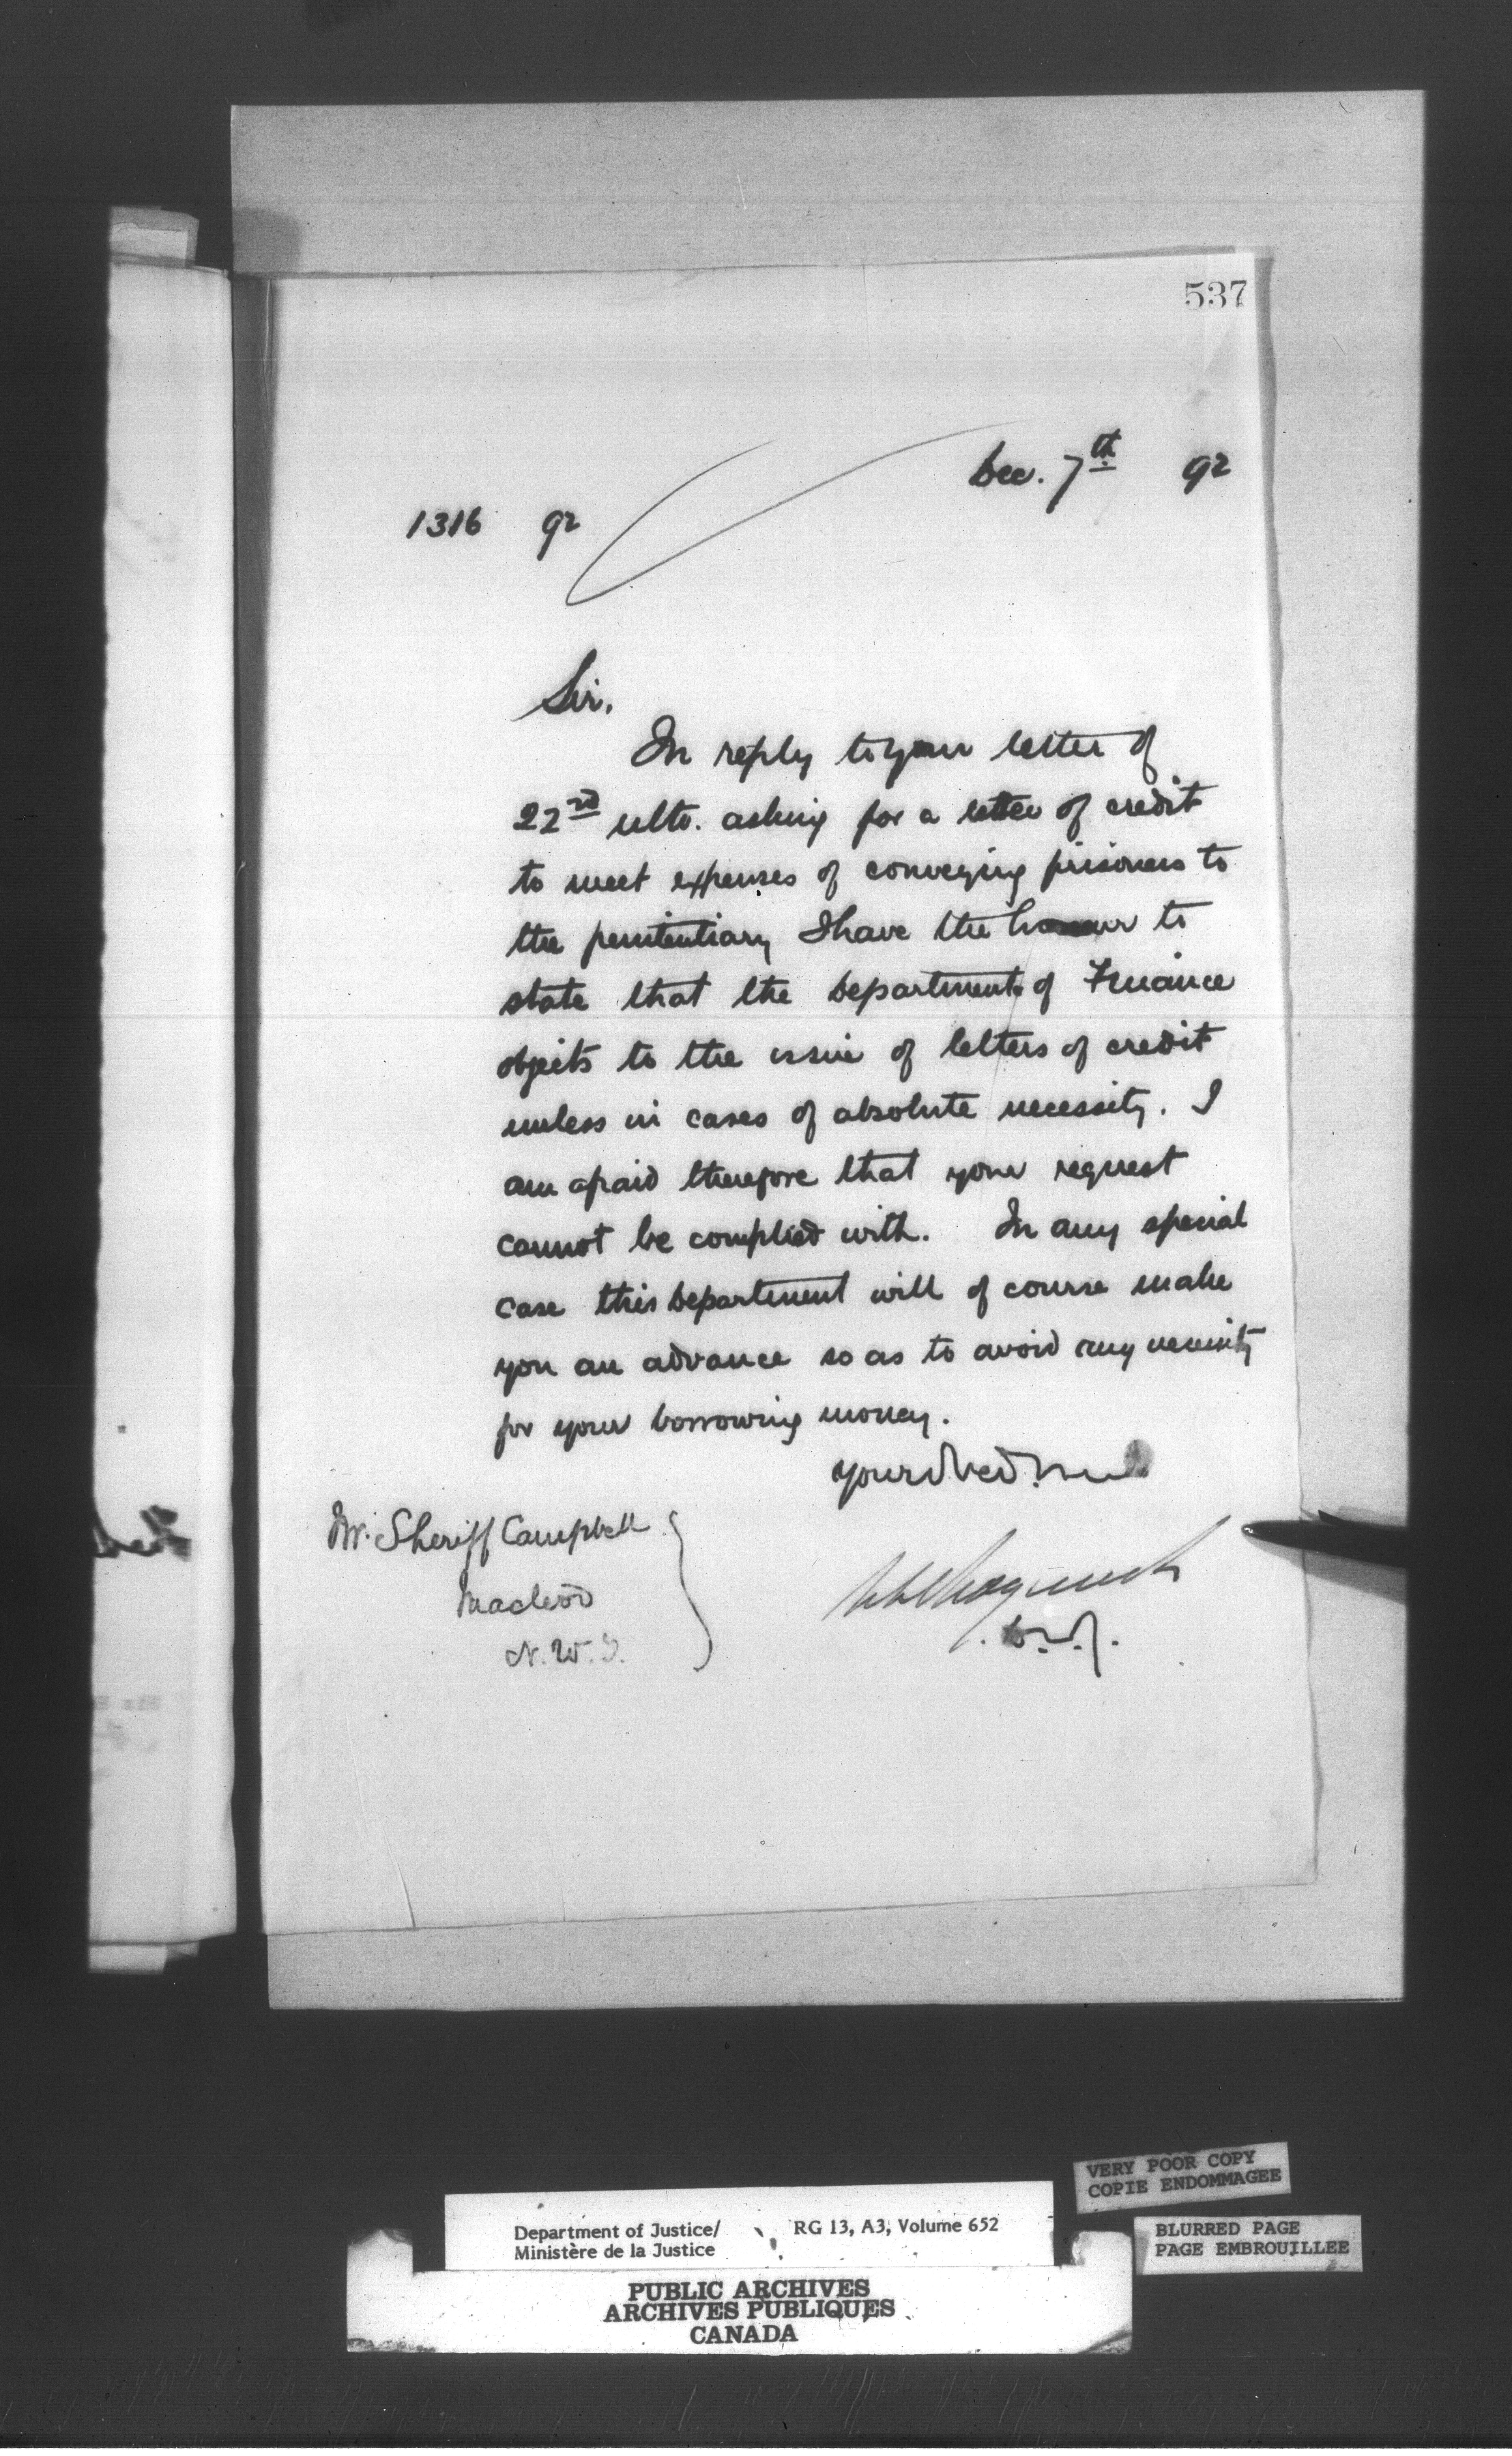 537
Dec. 7th 92
1316 92
Sir,
In reply to your letter of
22nd ulto. asking for a letter of credit
to meet expenses of conveying prisoners to
the penitentiary I have the honour to
state that the Department of Finance
objects to the issue of letters of credit
unless in cases of absolute necessity. I
am afraid therefore that your request
cannot be complied with. In any special
case this Department will of course make
you an advance so as to avoid any necessity
for your borrowing money.
Your
Mr. Sheriff Campbell
Macleod
N.W.T.
D.M.J.
VERY POOR COPY
COPIE ENDOMMAGEE
BLURRED PAGE
PAGE EMBROUILLEE
Department of Justice/ RG 13, A3, Volume 652
Ministère de la Justice
PUBLIC ARCHIVES
ARCHIVES PUBLIQUES
CANADA